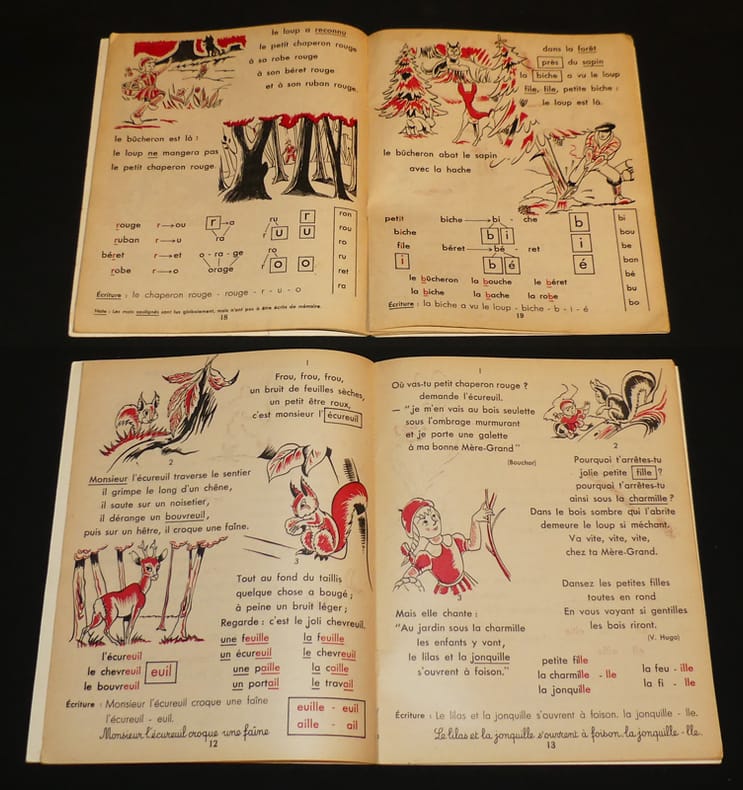 le loup a reconnu
le petit chaperon rouge
à sa robe rouge
à son béret rouge
et à son ruban rouge.
le bûcheron est là !
le loup ne mangera pas
le petit chaperon rouge.
rouge r→ou r→a ru r
ruban r→u ra r u u
béret r→et o - ra - ge ro
robe r→o orage r o o
ron
rou
ro
ru
ret
ra
Écriture : le chaperon rouge - rouge - r - u - o
Note : Les mots soulignés sont lus globalement, mais n'ont pas à être écrits de mémoire.
18
dans la forêt
près du sapin
la biche a vu le loup
file, file, petite biche :
le loup est là.
le bûcheron abat le sapin
avec la hache
petit biche→bi - che b
biche b i
file béret→bé - ret i
i b é é
le bûcheron la bouche le béret
la biche la bache la robe
bi
bou
be
ban
bé
bu
bo
Écriture : la biche a vu le loup - biche - b - i - é
19
1
Frou, frou, frou,
un bruit de feuilles sèches,
un petit être roux,
c'est monsieur l'écureuil
2
Monsieur l'écureuil traverse le sentier
il grimpe le long d'un chêne,
il saute sur un noisetier,
il dérange un bouvreuil,
puis sur un hêtre, il croque une faîne.
3
Tout au fond du taillis
quelque chose a bougé ;
à peine un bruit léger ;
Regarde : c'est le joli chevreuil.
une feuille la feuille
un écureuil le chevreuil
une paille la caille
un portail le travail
l'écureuil
le chevreuil euil
le bouvreuil
Écriture : Monsieur l'écureuil croque une faîne
l'écureuil - euil.
euille - euil
aille - ail
Monsieur l'écureuil croque une faîne
12
1
Où vas-tu petit chaperon rouge ?
demande l'écureuil.
— "je m'en vais au bois seulette
sous l'ombrage murmurant
et je porte une galette
à ma bonne Mère-Grand"
(Bouchor)
2
Pourquoi t'arrêtes-tu
jolie petite fille ?
pourquoi t'arrêtes-tu
ainsi sous la charmille ?
Dans le bois sombre qui l'abrite
demeure le loup si méchant.
Va vite, vite, vite,
chez ta Mère-Grand.
3
Mais elle chante :
"Au jardin sous la charmille
les enfants y vont,
le lilas et la jonquille
s'ouvrent à foison."
Dansez les petites filles
toutes en rond
En vous voyant si gentilles
les bois riront.
(V. Hugo)
petite fille
la charmille - lle
la jonquille
la feu - ille
la fi - lle
Écriture : Le lilas et la jonquille s'ouvrent à foison. la jonquille - lle.
Le lilas et la jonquille s'ouvrent à foison. la jonquille - lle.
13